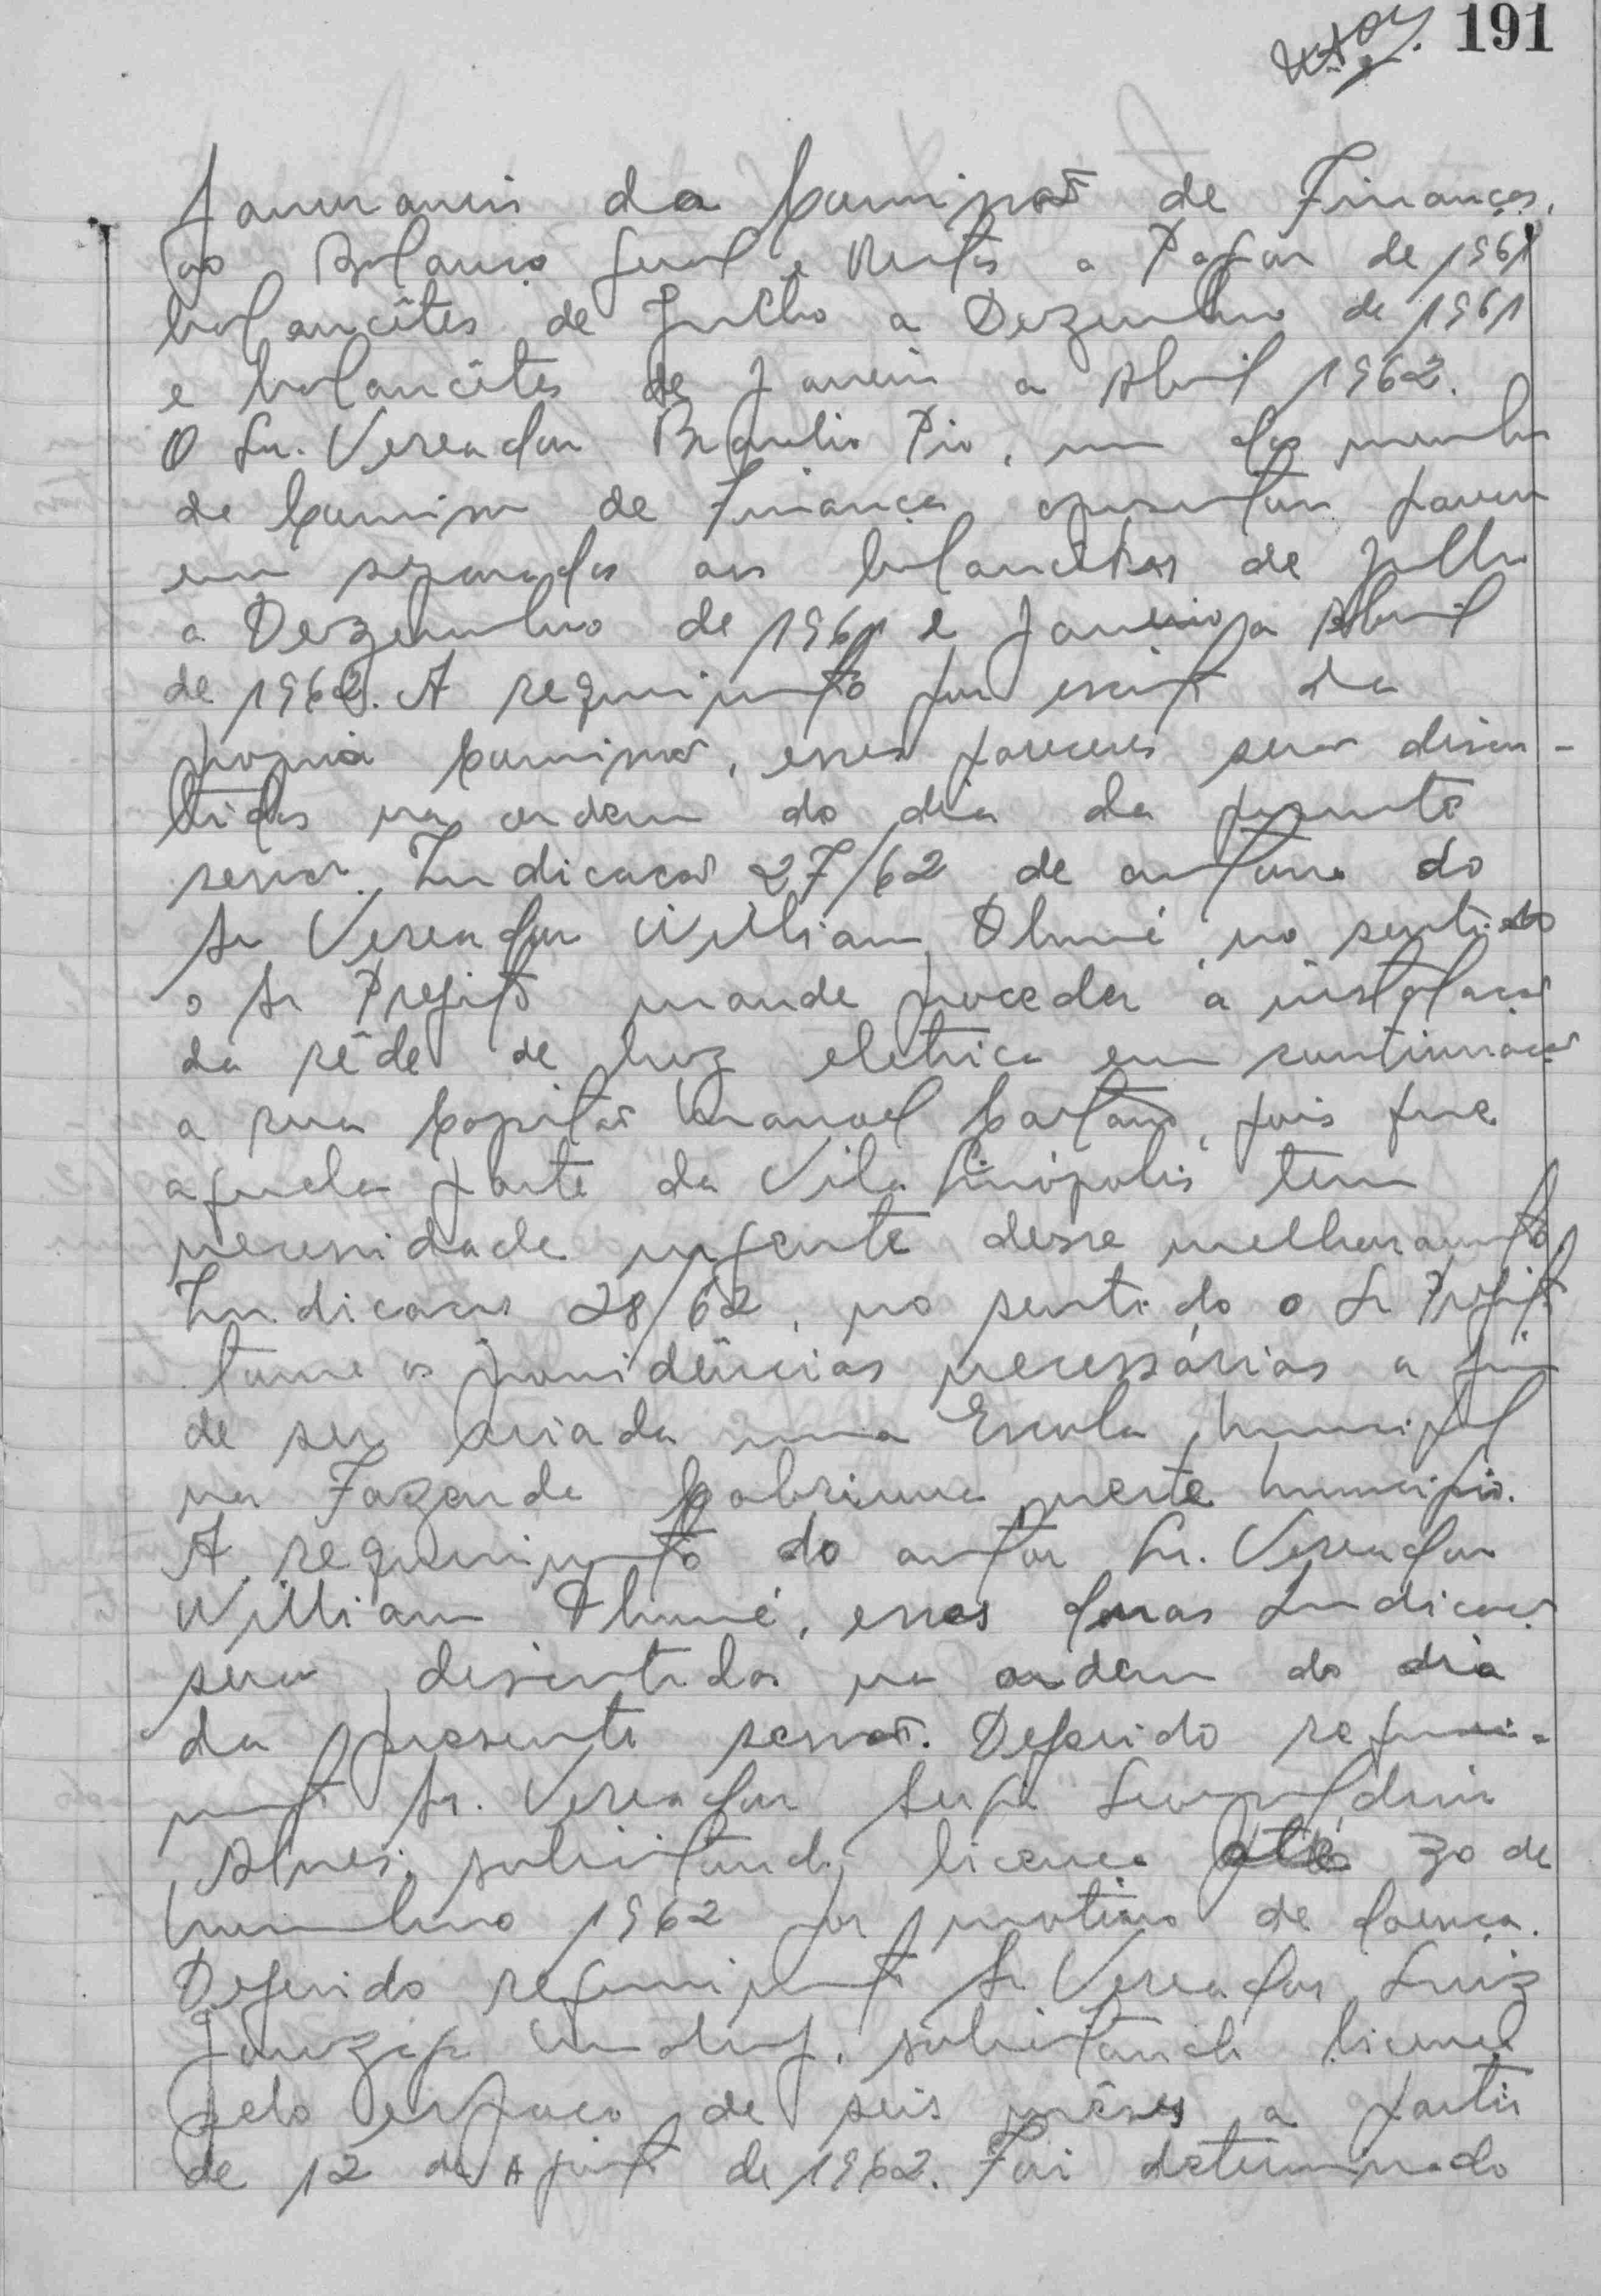 191
favoraveis da Comissão de Finanças,
ao Balanço Geral e Restos a Pagar de 1961
balancêtes de Julho a Dezembro de 1961
e balancêtes de Janeiro a Abril 1962.
O Sr. Vereador Braulio Pio, um dos membros
da Comissão de Finança apresentou parecer
em separados aos balancêtes de Julho
a Dezembro de 1961 e Janeiro a Abril
de 1962. A requerimento por escrito da
propria Comissão, esses pareceres serão discu-
tidos na ordem do dia da presente
sessão. Indicação 27/62 de autoria do
Sr Vereador William no sentido
o Sr Prefeito mande proceder a instalação
da rêde de luz eletrica em continuação
a rua Capitão Manoel Caetano, pois que
aquela parte da Vila tem
necessidade urgente desse melhoramento.
Indicação 28/62, no sentido o Sr Prefeito
tome as providências necessárias a fim
de ser criada uma Escola Municipal
na Fazenda neste municipio.
A requerimento do autor Sr. Vereador
William, essas duas Indicações
serão discutidas na ordem do dia
da presente sessão. Deferido requeri-
mento Sr. Vereador
Alves, solicitando licença até 30 de
1962 por motivo de doença.
Deferido requerimento Sr Vereador Luiz
solicitando licença
pelo espaço de seis mêses a partir
de 12 de Agosto de 1962. Foi determinado